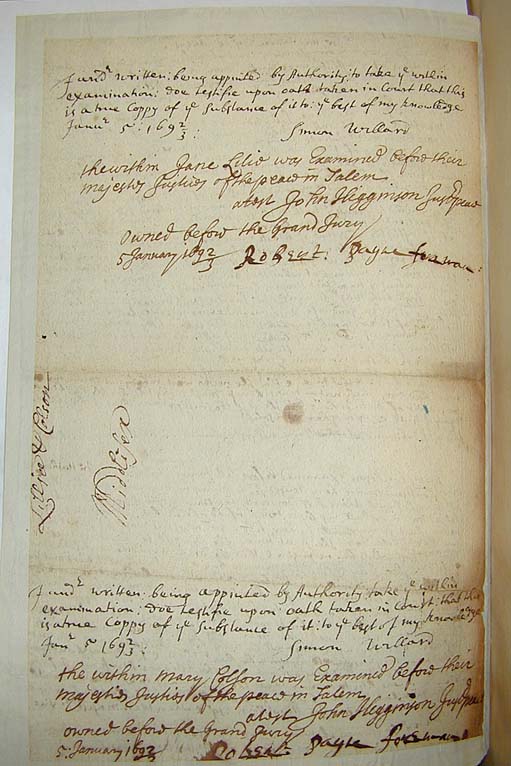 I undr written: being appointed by Authority: to take ye within
examination: doe testifie upon oath taken in Court that this
is a true Coppy of ye Substance of it: to: ye best of my knowledge
Janur 5: 169 2/3:
Simon Willard
the within Jane Lilie was Examined before their
majesties Justices of the peace in Salem
atest John Higginson Justpeace
owned before the Grand Jury
5 January 1692/3 Robert: Payne foreman:
Lillies & Colson
Middlesex
I undr written: being appointed by Authority: take ye within
examination: doe testifie upon: oath taken in court: that this
is a true Coppy of ye Substance of it: to ye best of my knowledge
Janr 5 169 2/3:
Simon Willard
the within mary Colson was Examined before their
majesties Justices of the peace in Salem
atest John Higginson Justpeace
owned before the Grand Jury
5: January 1692/3 Robert: Payne foreman